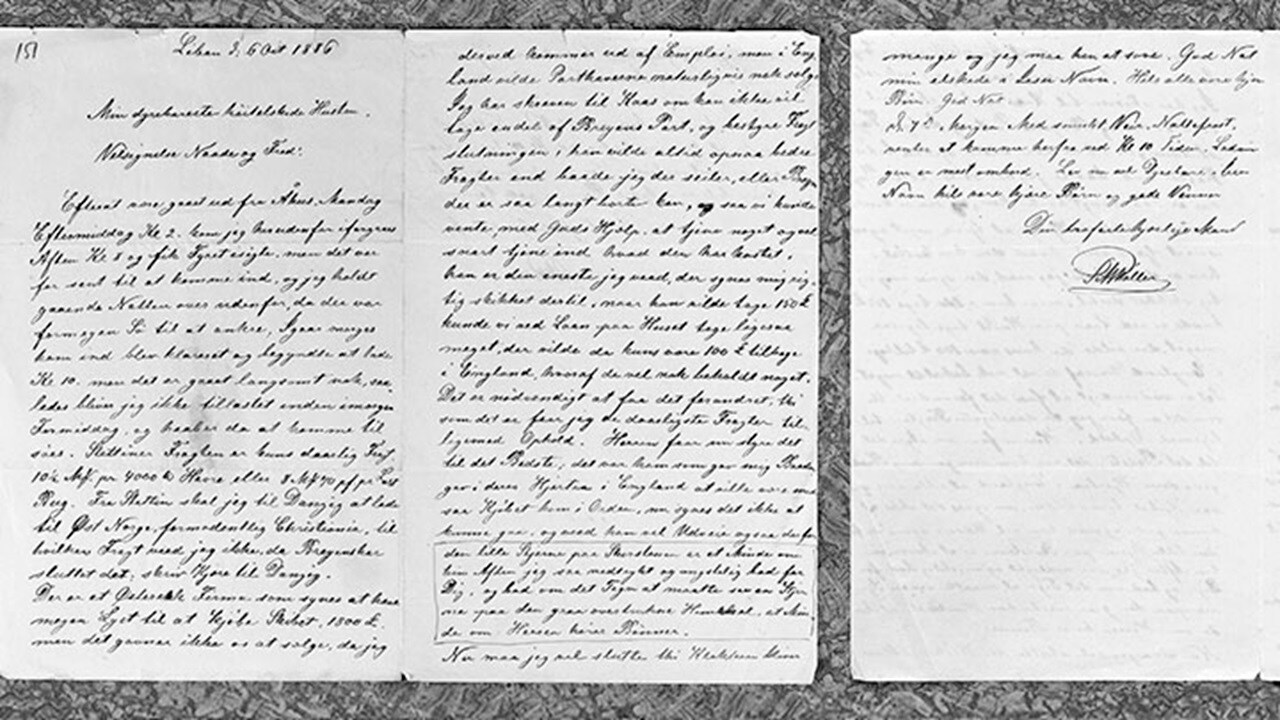 151
Libau d. 6 Oct 1886
Min dyrekæreste hiertelskede Hustru.
Velsignelse Naade og Fred!
Efterat være gaaet ud fra Åhus Mandag
Eftermiddag Kl 2. kom jeg her udenfor iforgaars
Aften Kl 8 og fik Fyret isigte, men det var
for sent til at komme ind, og jeg holdt
gaaende Natten over udenfor, da der var
formegen Sö til at ankre, Igaar morges
kom ind blev klareret og begyndte at lade
Kl 10. men det er gaaet langsomt nok, saa
ledes bliver jeg ikke fuldlastet inden imorgen
Formiddag, og haaber da at komme til
söes. Stettiner Fragten er kuns daarlig
10½ Mk. pr 4000 Havre eller 8 Mk 70 pf pr Last
Rug. Fra Stettin skal jeg til Danzig at lade
til Øst Norge, formodentlig Christiania, til
hvilken Fragt veed jeg ikke, da Breyen har
sluttet det; skriv kjære til Danzig.
Der er et Firma som synes at have
megen Lyst til at Kjöbe Skibet, 1800 £.
men det gavner ikke os at sælge, da jeg
derved kommer ud af Emploi, men i Eng
land vilde Parthaverne naturligvis nok sælge
Jeg har skreven til Haas om han ikke vil
tage endel af Breyens Part, og bestyre Fragt
slutningen; han vilde altid opnaa bedre
Fragter end baade jeg der seiler, eller
der er saa langt borte kan, og saa vi kunde
vente med Guds Hjælp, at tjene noget ogsaa
snart tjene ind hvad den har kostet.
han er den eneste jeg veed, der synes mig rig-
tig skikket dertil, naar han vilde tage 150 £
kunde vi ved Laan paa Huset tage ligesaa
meget, der vilde da kuns være 100 £ tilbage
i England, hvoraf de vel nok beholdt noget.
Det er nödvendigt at faa det forandret, thi
som det er faar jeg de daarligste Fragter til-
ligemed Ophold. Herren faar nu styre det
til det Bedste; det var ham som gav mig
gav i deres Hjerter i England at ville være med
saa Kjöbet kom i Orden, nu synes det ikke at
kunne gaa, ogsaa kan vel Udveie ogsaa
den lille Stjerne paa er et Minde om
hin Aften jeg saa nedtrykt og ængstelig bad for
Dig, og bad om det Tegn at maatte see en Stjer
ne paa den graa overtrukne Himmel, at Min
de om Herren hörer Bönner.
Nu maa jeg vel slutte thi Klokken bliver
mange og jeg maa hen at sove. God Nat
min elskede i Jesu Navn. Hils alle vore kjære
Börn. God Nat
D. 7de Morgen Med smukt Veir, Nattefrost.
venter at komme herfra ved Kl 10 Tiden, Ladnin
gen er mest ombord. Lev nu vel Dyrebare i Jesu
Navn hils vore kjære Börn og gode Venner
Din trofaste hengivne Mand